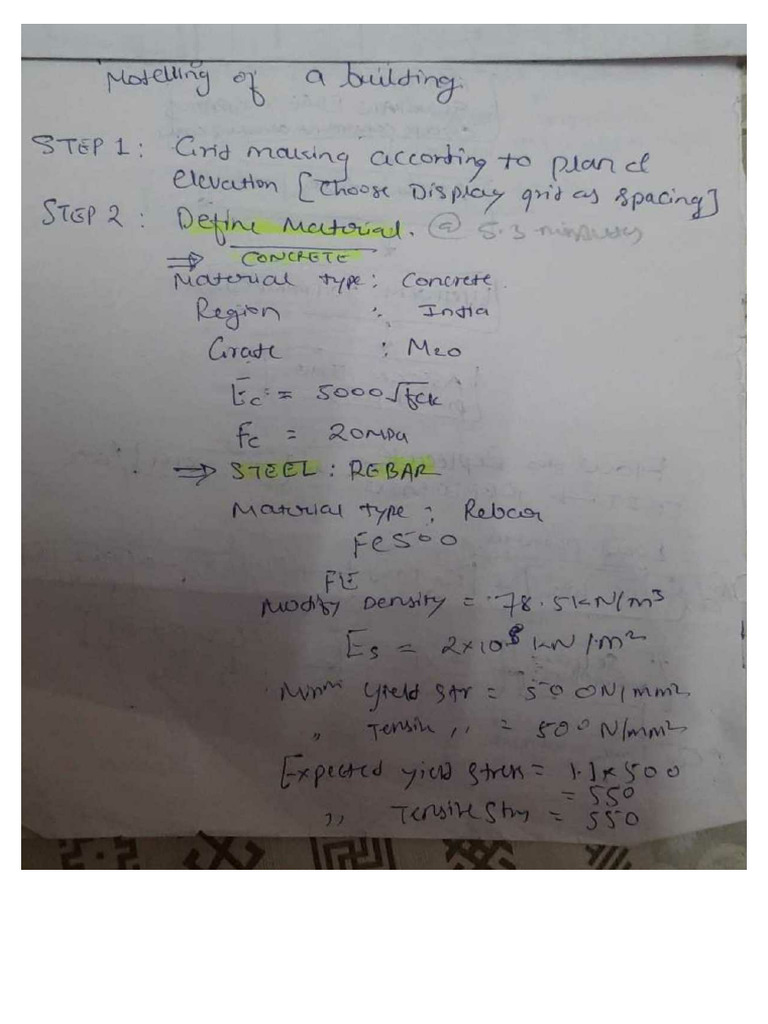 Modelling of a building.
STEP 1: Grid making according to plan &
elevation [Choose Display grid as spacing]
STEP 2: Define Material. @ 5.3 minutes
⇒ CONCRETE
Material type: Concrete.
Region : India
Grade : M20
Ec = 5000√fck
Fc = 20MPa
⇒ STEEL: REBAR
Material type: Rebar
Fe500
FE
Modify Density = 78.5kN/m³
Es = 2×10⁸ kN/m²
Minm Yield Str = 500N/mm2
,, Tensile ,, = 500 N/mm2
Expected yield stress = 1.1×500
= 550
,, Tensile Strs = 550